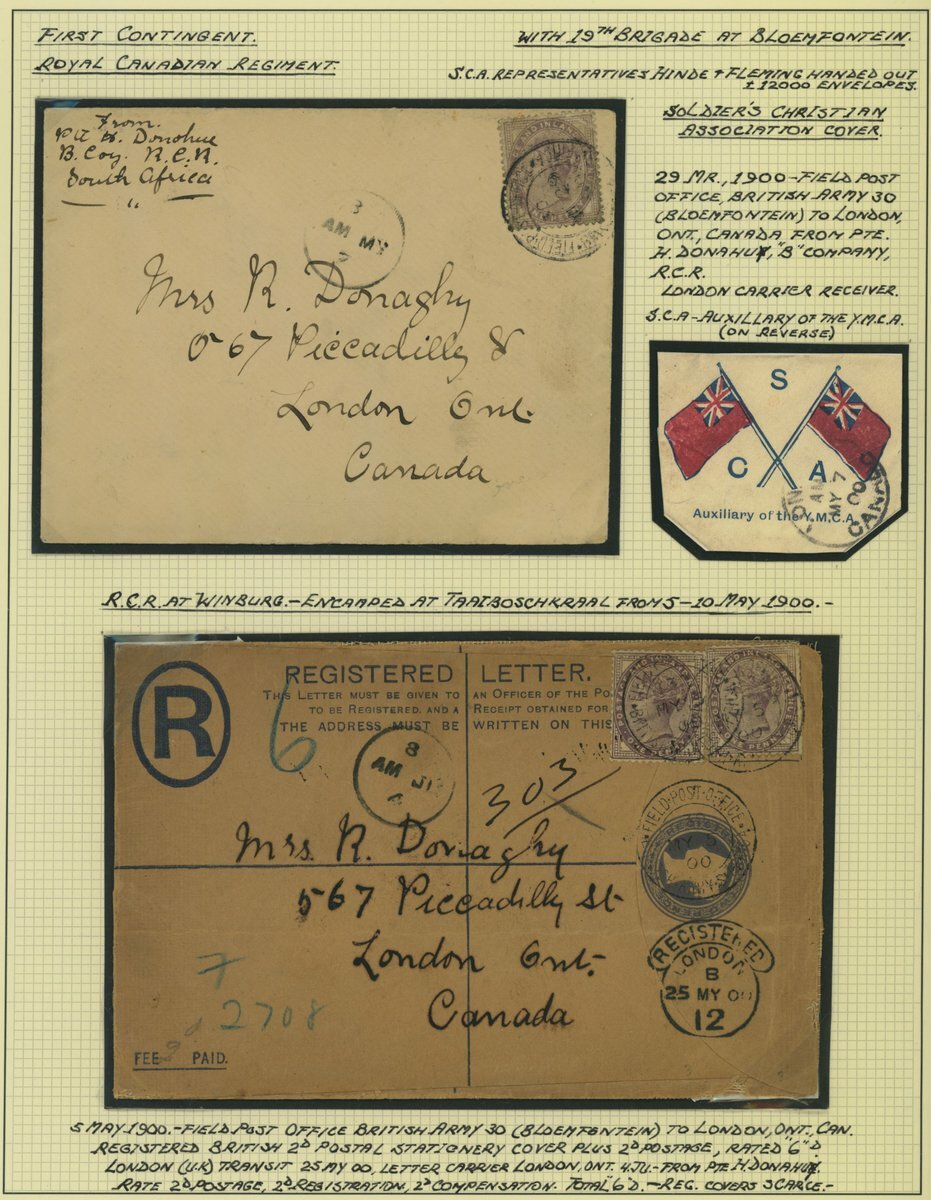 FIRST CONTINGENT.
ROYAL CANADIAN REGIMENT.
WITH 19TH BRIGADE AT BLOEMFONTEIN.
S.C.A. REPRESENTATIVES HINDE + FLEMING HANDED OUT
± 12000 ENVELOPES.
SOLDIER'S CHRISTIAN
ASSOCIATION COVER.
29 MR., 1900 - FIELD POST
OFFICE, BRITISH ARMY 30
(BLOEMFONTEIN) TO LONDON,
ONT., CANADA FROM PTE.
H. DONAHUY, "B" COMPANY,
R.C.R.
LONDON CARRIER RECEIVER.
S.C.A - AUXILLARY OF THE Y.M.C.A.
(ON REVERSE)
From.
Pte H. Donohue
B. Coy. R.C.R.
South Africa
"
3
AM MY
7
Mrs R. Donaghy
567 Piccadilly St
London Ont.
Canada
S
C A
Auxiliary of the Y.M.C.A.
LON
AM
MY 7
00
CANADA
R.C.R. AT WINBURG. - ENCAMPED AT TAAIBOSCHKRAAL FROM 5 - 10 MAY 1900. -
R
REGISTERED LETTER.
THIS LETTER MUST BE GIVEN TO AN OFFICER OF THE PO
TO BE REGISTERED, AND A RECEIPT OBTAINED FOR
THE ADDRESS MUST BE WRITTEN ON THIS
6
8
AM JU
4
303
FIELD POST OFFICE
00
Mrs. R. Donaghy
567 Piccadilly St
London Ont.
Canada
REGISTERED
LONDON
B
25 MY 00
12
7
2708
FEE PAID.
5 MAY 1900. - FIELD POST OFFICE BRITISH ARMY 30 (BLOEMFONTEIN) TO LONDON, ONT., CAN.
REGISTERED BRITISH 2D POSTAL STATIONERY COVER PLUS 2D POSTAGE, RATED "6" D.
LONDON (UK) TRANSIT 25 MY 00, LETTER CARRIER LONDON, ONT. 4 JU. - FROM PTE H. DONAHUY.
RATE 2D POSTAGE, 2D REGISTRATION, 2D COMPENSATION. TOTAL "6" D. - REG. COVERS SCARCE. -